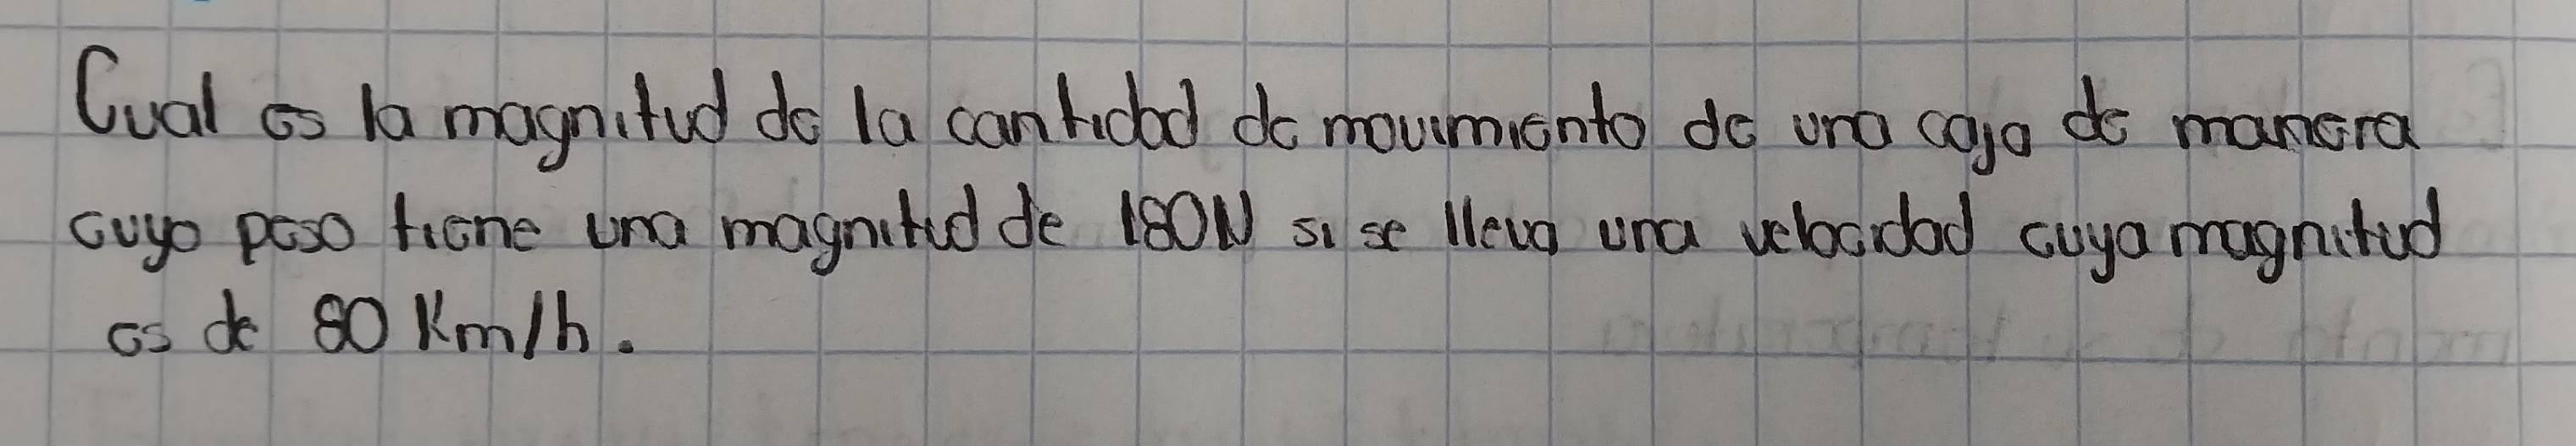 Cual es la magnitud de la cantidad de movimiento de una caja de manera
cuyo peso tiene una magnitud de 180N si se lleva una velocidad cuya magnitud
es de 80 Km/h.